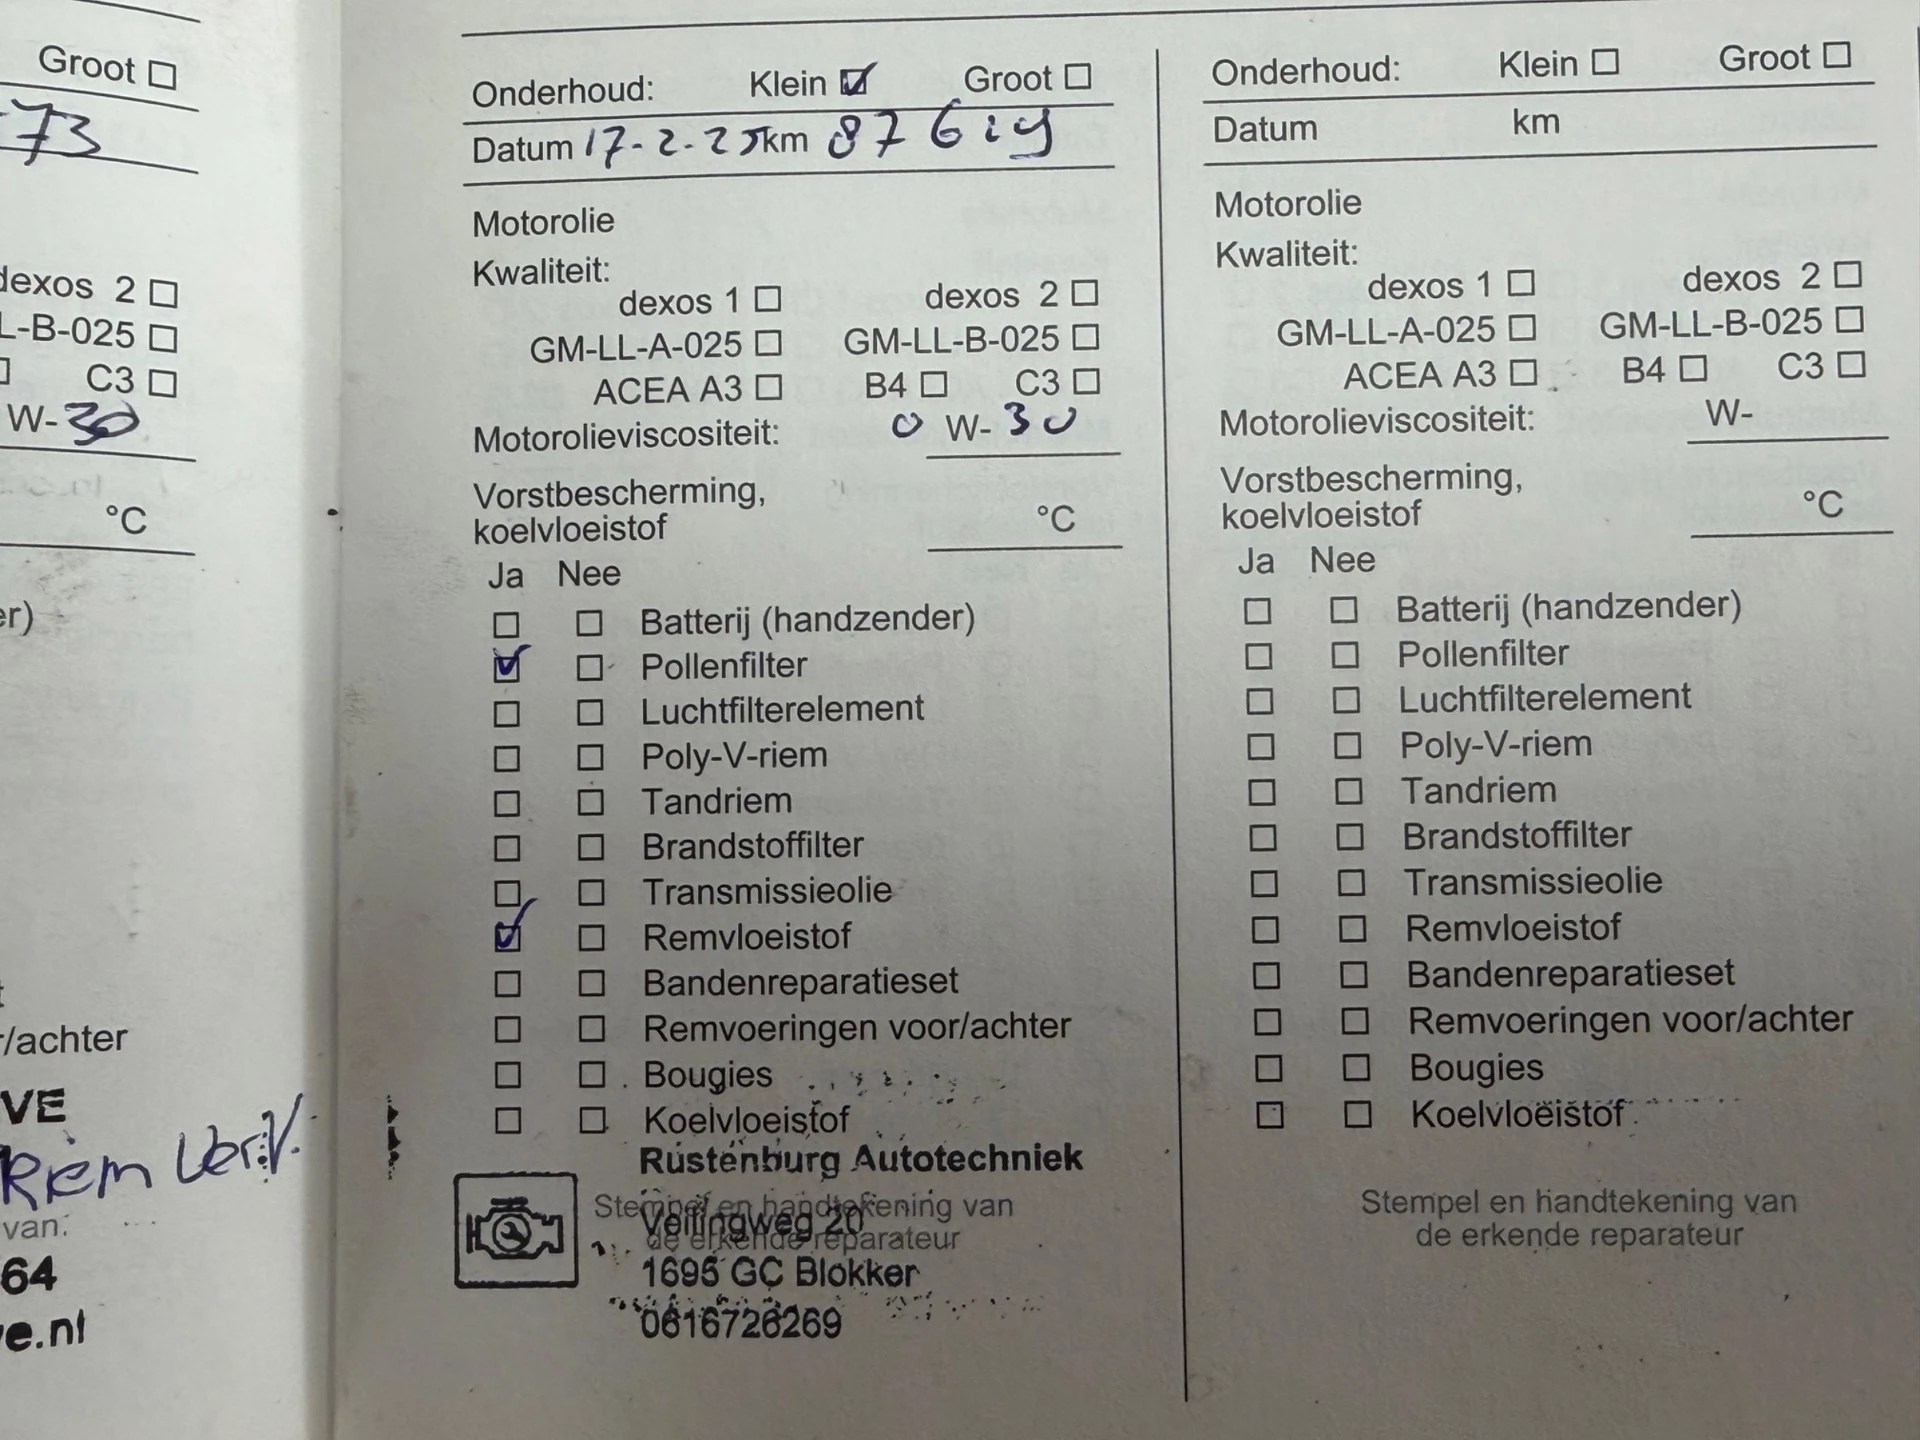 Groot
73
dexos 2
L-B-025
C3
W-30
°C
er)
r/achter
VE
Riem Ver.V.
van:
64
e.nl
Onderhoud: Klein Groot
Datum 17-2-25 km 876
Motorolie
Kwaliteit:
dexos 1 dexos 2
GM-LL-A-025 GM-LL-B-025
ACEA A3 B4 C3
Motorolieviscositeit: 0 W-30
Vorstbescherming,
koelvloeistof °C
Ja Nee
Batterij (handzender)
Pollenfilter
Luchtfilterelement
Poly-V-riem
Tandriem
Brandstoffilter
Transmissieolie
Remvloeistof
Bandenreparatieset
Remvoeringen voor/achter
Bougies
Koelvloeistof
Rustenburg Autotechniek
Stempel en handtekening van
Veilingweg 20
de erkende reparateur
1695 GC Blokker
0616726269
Onderhoud: Klein Groot
Datum km
Motorolie
Kwaliteit:
dexos 1 dexos 2
GM-LL-A-025 GM-LL-B-025
ACEA A3 B4 C3
Motorolieviscositeit: W-
Vorstbescherming,
koelvloeistof °C
Ja Nee
Batterij (handzender)
Pollenfilter
Luchtfilterelement
Poly-V-riem
Tandriem
Brandstoffilter
Transmissieolie
Remvloeistof
Bandenreparatieset
Remvoeringen voor/achter
Bougies
Koelvloeistof
Stempel en handtekening van
de erkende reparateur